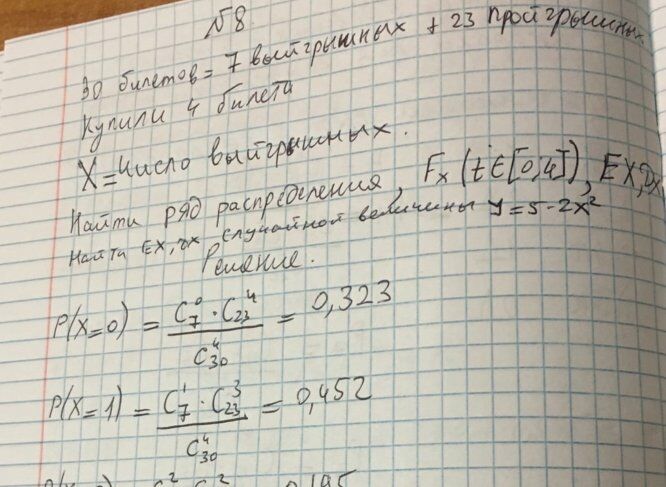 №8.
30 билетов = 7 выйгрышных + 23 пройгрышных
Купили 4 билета
X = Число выйгрышных.
Найти ряд распределения, Fx (t ∈ [0;4]), EX, DX
Найти EX, DX случайной величины y = 5 - 2x²
Решение.
P(X=0) = C₇⁰ · C₂₃⁴ / C₃₀⁴ = 0,323
P(X=1) = C₇¹ · C₂₃³ / C₃₀⁴ = 0,452